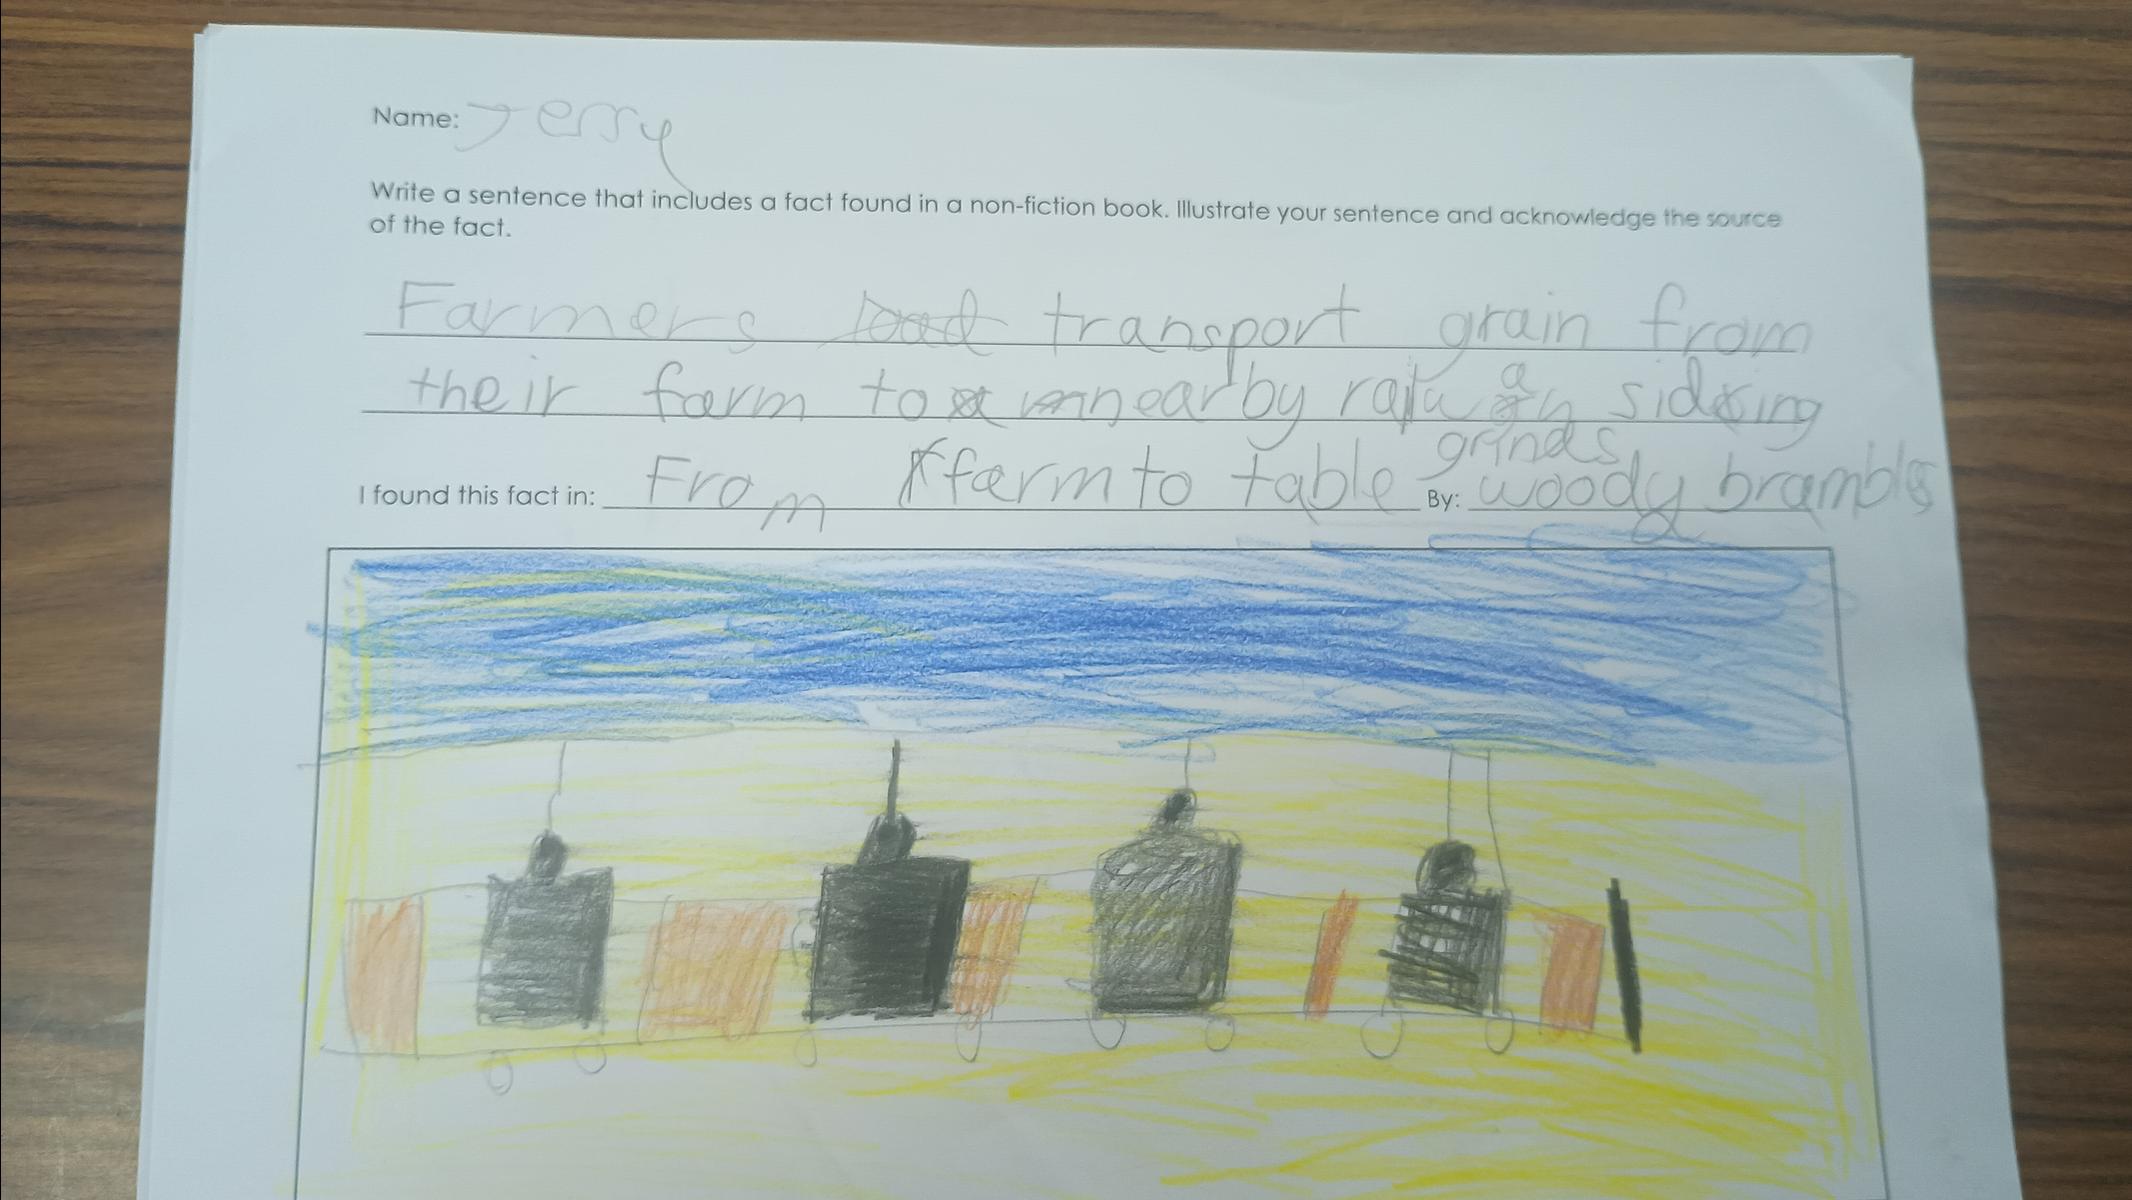 Name: Jerry
Write a sentence that includes a fact found in a non-fiction book. Illustrate your sentence and acknowledge the source
of the fact.
Farmers transport grain from
their farm to nearby siding
grinds
I found this fact in: From farm to table By: woody brambles